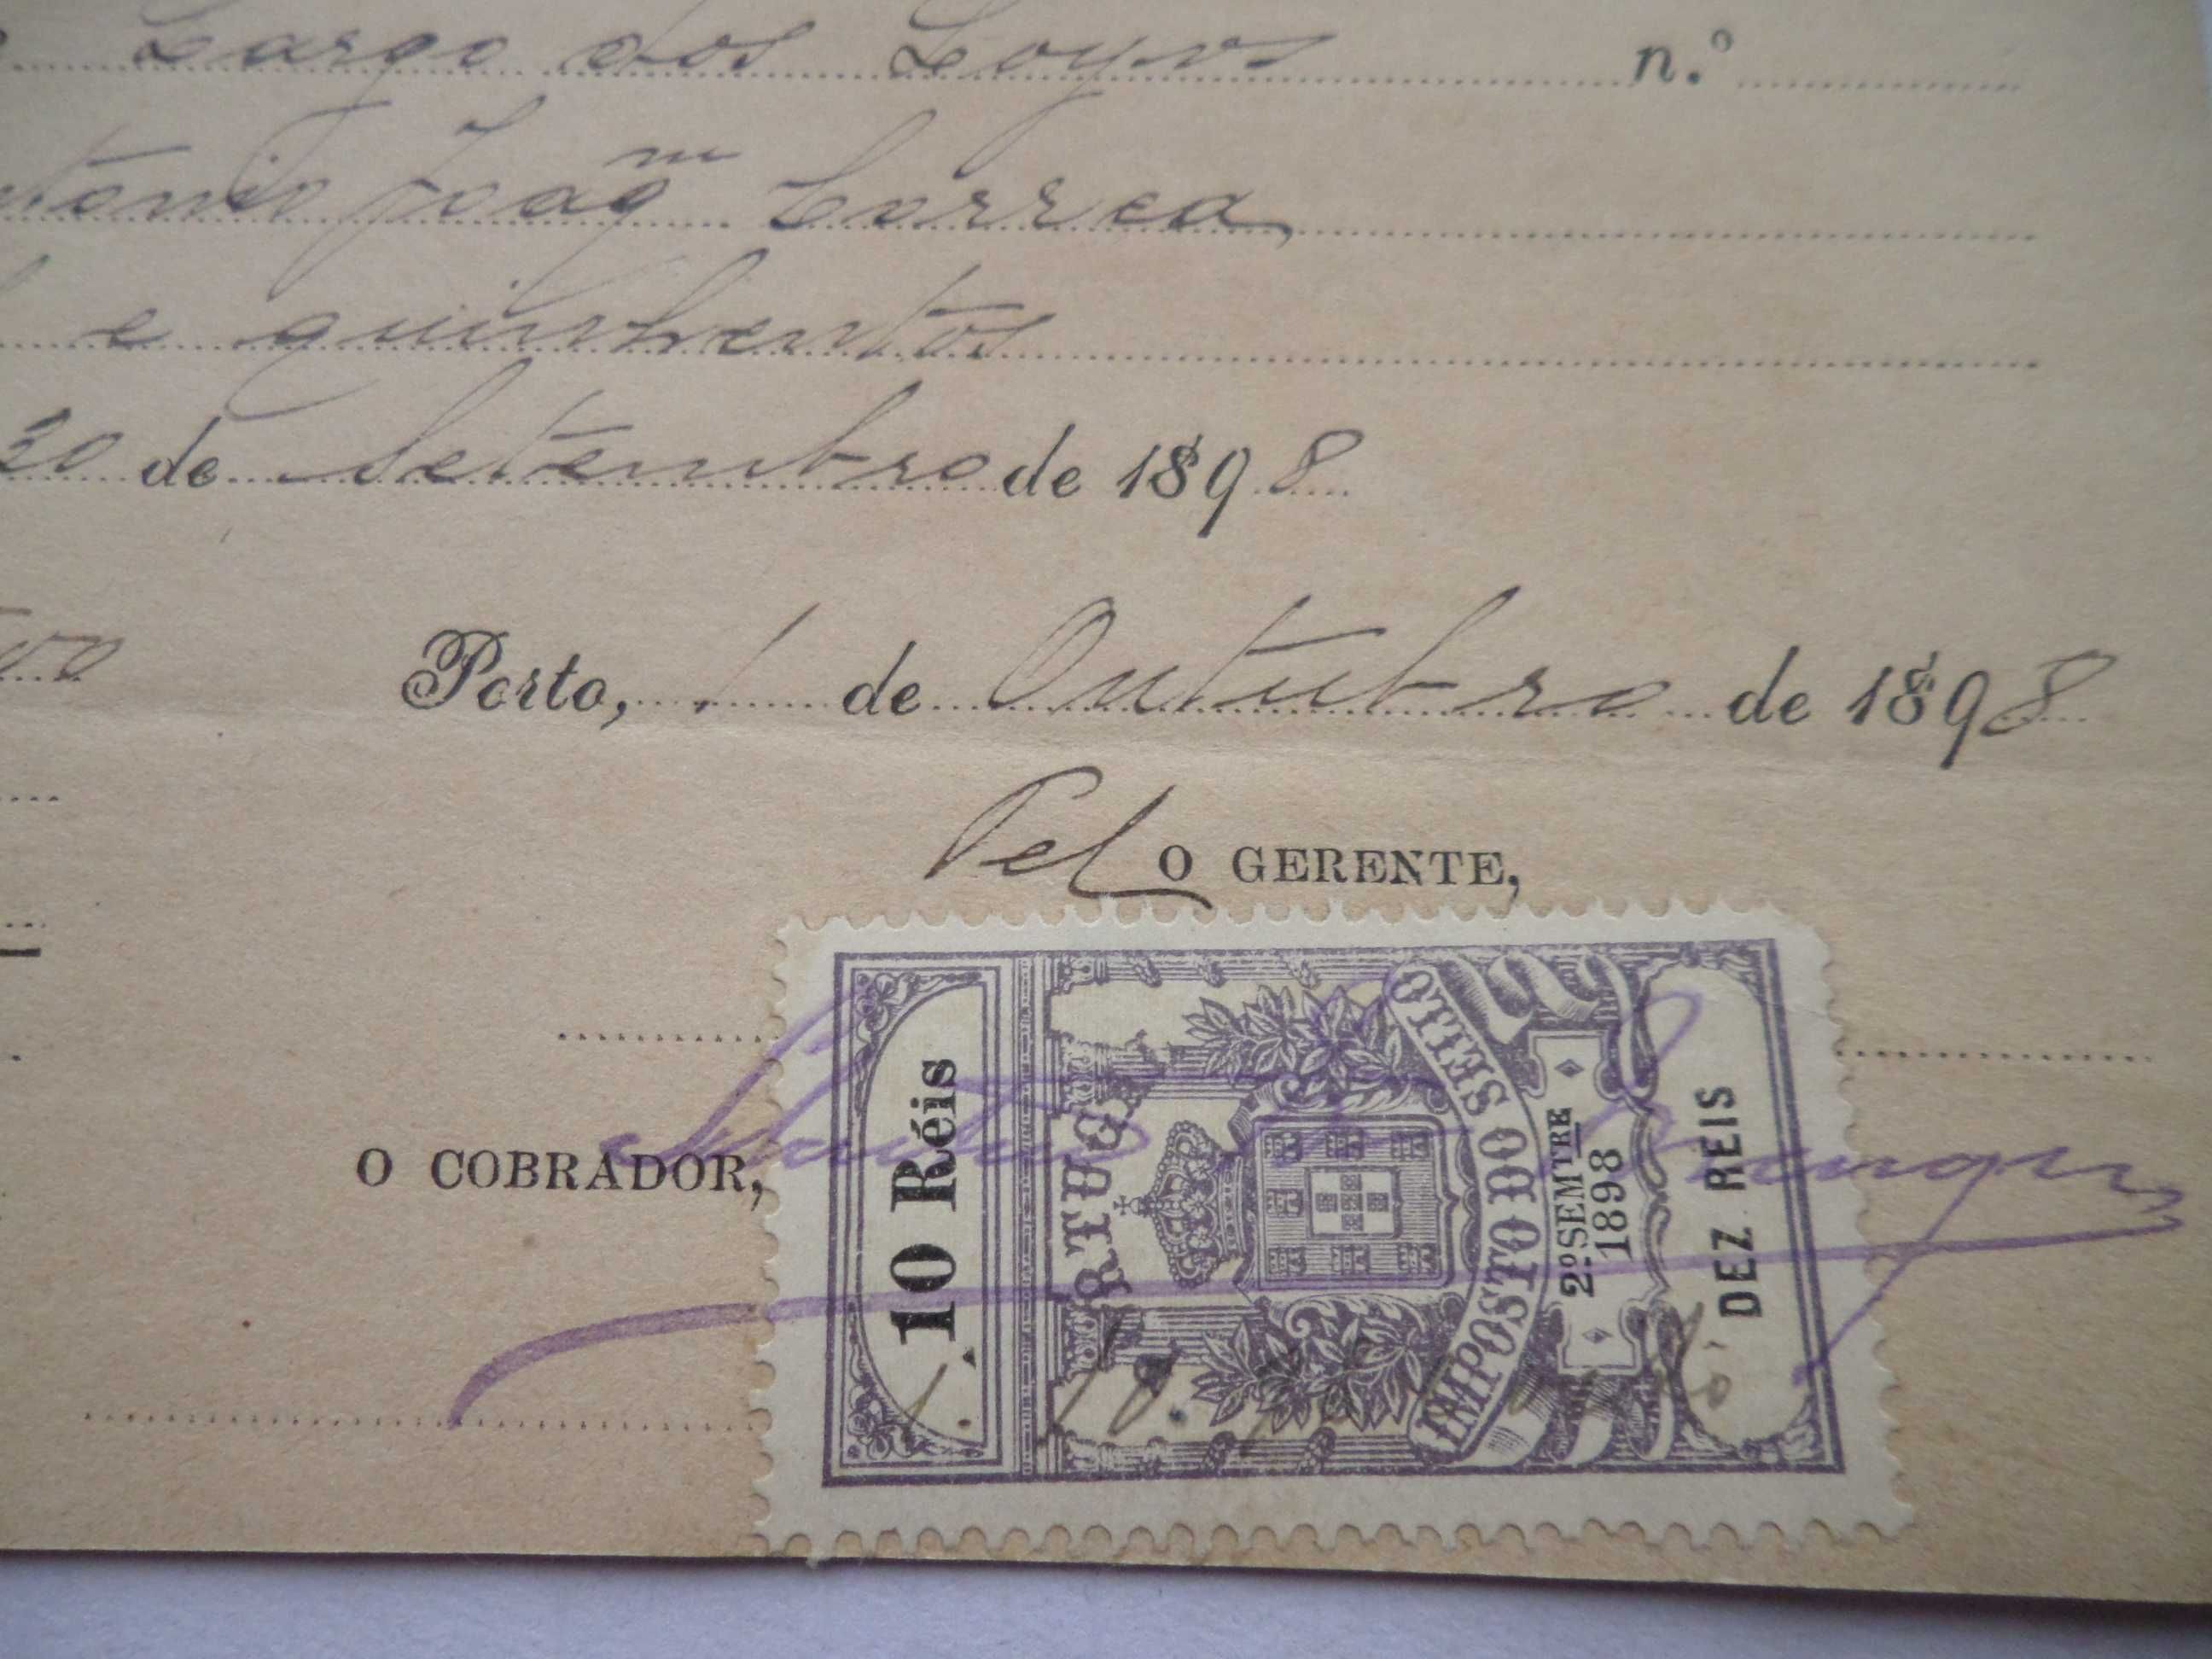 Largo dos Loyos n.º
Joaqm Correa
e quinhentos
30 de Setembro de 1898
Porto, 1 de Outubro de 1898
Pelo GERENTE,
O COBRADOR,
10 Réis
IMPOSTO DO SELLO
2º SEMTRE
1898
DEZ RÉIS